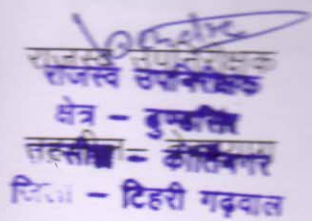 राजस्व उपनिरीक्षक
क्षेत्र –
तहसील – कीर्तिनगर
जिला – टिहरी गढ़वाल